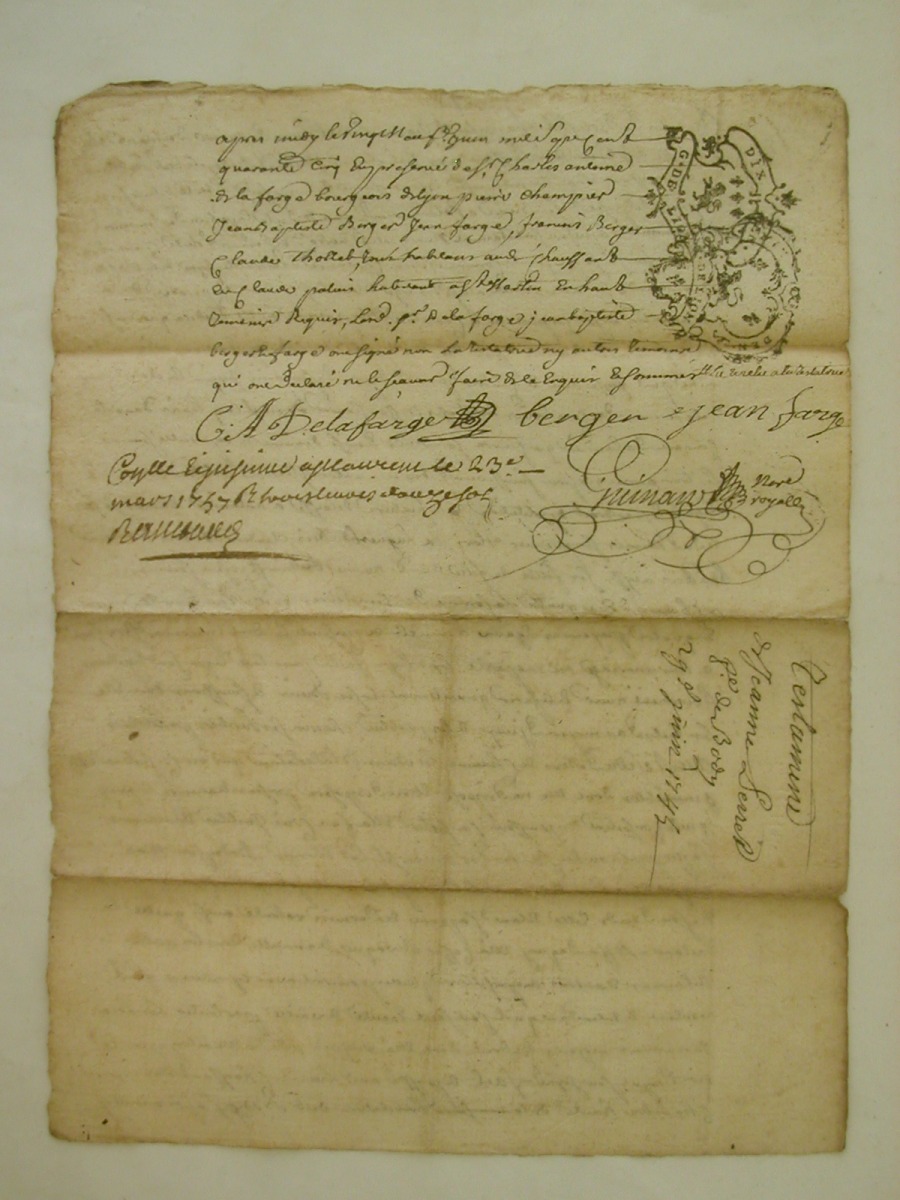 apres midy le vingt neuf juin mil sept cent
quarante cinq En presence de sr. Charles antoine
de la farge bourgeois de lyon pierre champier
Jean Baptiste Berger Jean farge, francois Berger
Claude thollet, tous habitans aud. chauffant
et Claude habitant a st Martin En haut
temoins Requis, Led. sr. De la farge jean baptiste
berger et farge ont signé non La testatrice ny autres temoins
qui ont declaré ne le scavoir faire de ce Enquis & sommés
C. A Delafarge berger jean farge
a st laurent le 23e
mars 1757 trois livres douze sols
Guinand Nore
royall
Testament
de Jeanne
fe. de Body
29e juin 1745
G. DE LYON
DIX